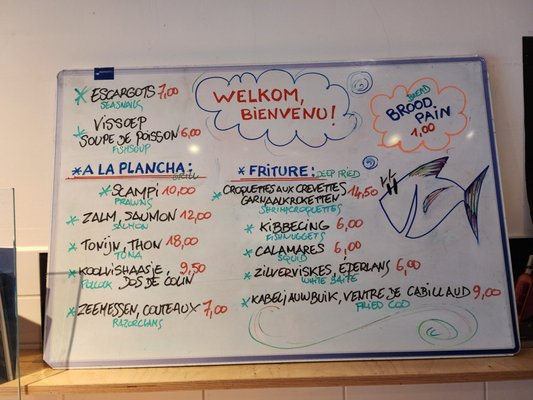 * ESCARGOTS 7,00
SEASNAILS
* VISSOEP
SOUPE DE POISSON 6,00
FISHSOUP
WELKOM,
BIENVENU!
BREAD
BROOD
PAIN
1,00
* A LA PLANCHA:
GRILL
* SCAMPI 10,00
PRAWNS
* ZALM, SAUMON 12,00
SALMON
* TONIJN, THON 18,00
TONA
* KOOLVISHAASJE, 9,50
POLLOCK DOS DE COLIN
* ZEEMESSEN, COUTEAUX 7,00
RAZORCLAMS
* FRITURE: DEEP FRIED
* CROQUETTES AUX CREVETTES 14,50
GARNAALKROKETTEN
SHRIMCROQUETTES
* KIBBELING 6,00
FISHNUGGETS
* CALAMARES 6,00
SQUID
* ZILVERVISKES, EDERLANS 6,00
WHITE BAITE
* KABELJAUWBUIK, VENTRE DE CABILLAUD 9,00
FRIED COD